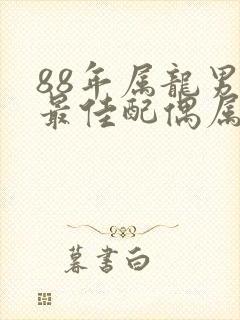 88年属龍男
最佳配偶属
暮書白